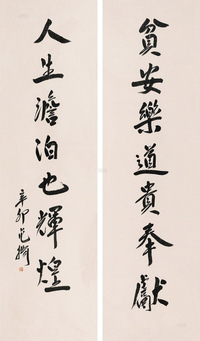 貧安樂道貴奉獻
人生澹泊也輝煌
辛卯